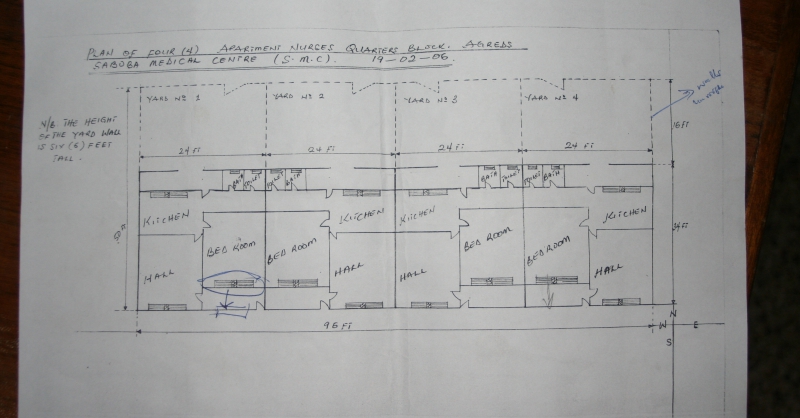 PLAN OF FOUR (4) APARTMENT NURSES QUARTERS BLOCK. AGREDS
SABOBA MEDICAL CENTRE (S.M.C). 19-02-06.
YARD No 1
YARD No 2
YARD No 3
YARD No 4
N/B THE HEIGHT
OF THE YARD WALL
IS SIX (6) FEET
TALL.
16 Ft
24 Ft
24 Ft
24 Ft
24 Ft
BATH
TOILET
TOILET
BATH
BATH
TOILET
TOILET
BATH
KITCHEN
KITCHEN
KITCHEN
KITCHEN
BED ROOM
BED ROOM
BED ROOM
BED ROOM
HALL
HALL
HALL
HALL
96 Ft
N
W
E
S